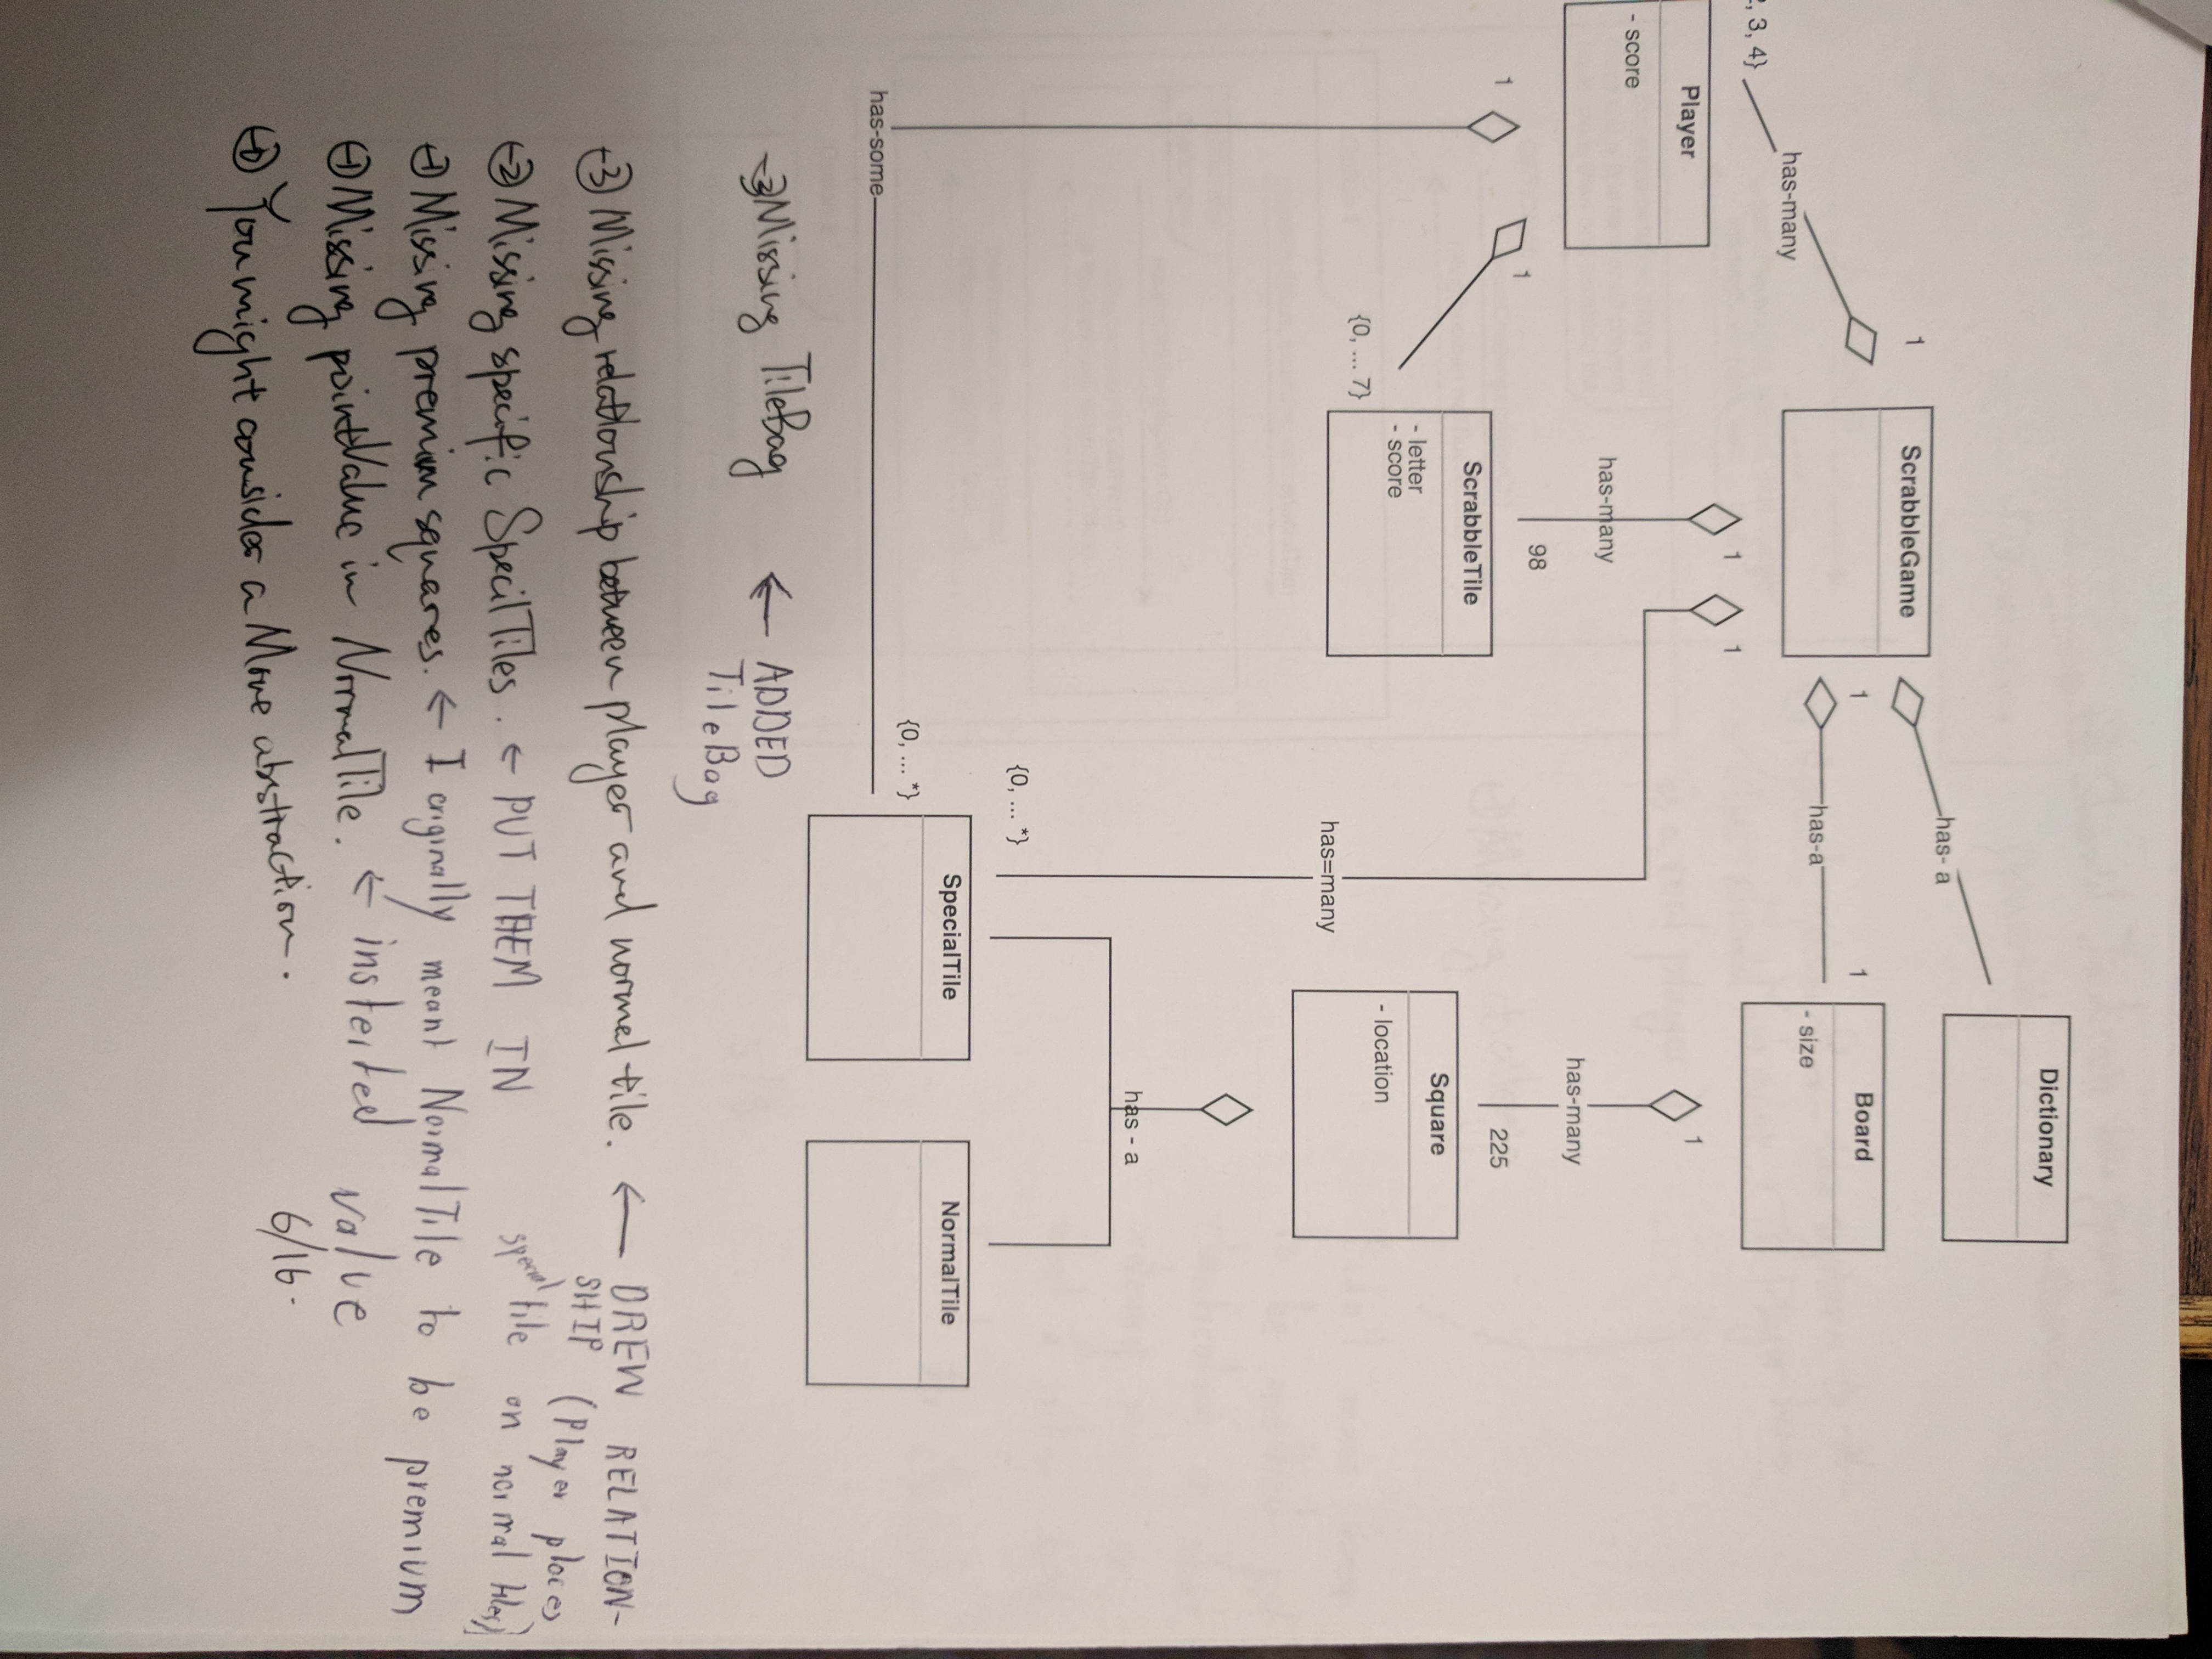 Dictionary
has- a
1
ScrabbleGame
1
1
Board
has-a
- size
has-many
, 3, 4}
1
1
Player
1
- score
has-many
has-many
98
1
1
225
ScrabbleTile
Square
- letter
- score
- location
{0, ... 7}
has=many
has - a
{0, ... *}
SpecialTile
NormalTile
{0, ... *}
has-some
-3 Missing TileBag ← ADDED
TileBag
-3) Missing relationship between player and normal tile. ← DREW RELATION-
SHIP (Player places
special tile on normal tiles)
-2) Missing specific SpecilTiles. ← PUT THEM IN
-1) Missing premium squares. ← I originally meant NormalTile to be premium
-1) Missing pointValue in NormalTile. ← insterted value
6/16.
-0) You might consider a Move abstraction.